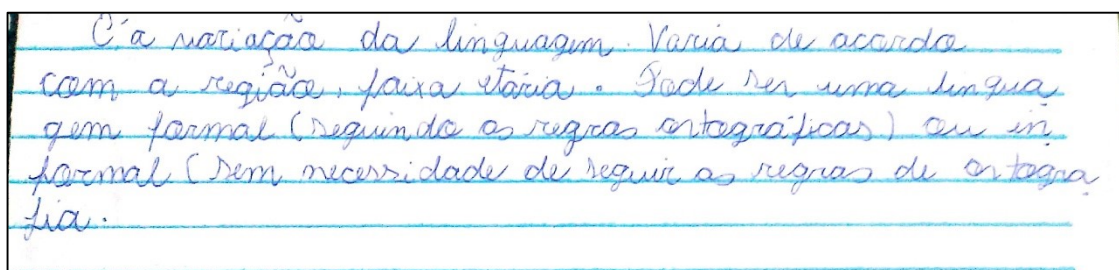 É a variação da linguagem. Varia de acordo
com a região, faixa etária. Pode ser uma lingua
gem formal (seguindo as regras ortográficas) ou in
formal (sem necessidade de seguir as regras de ortogra
fia.